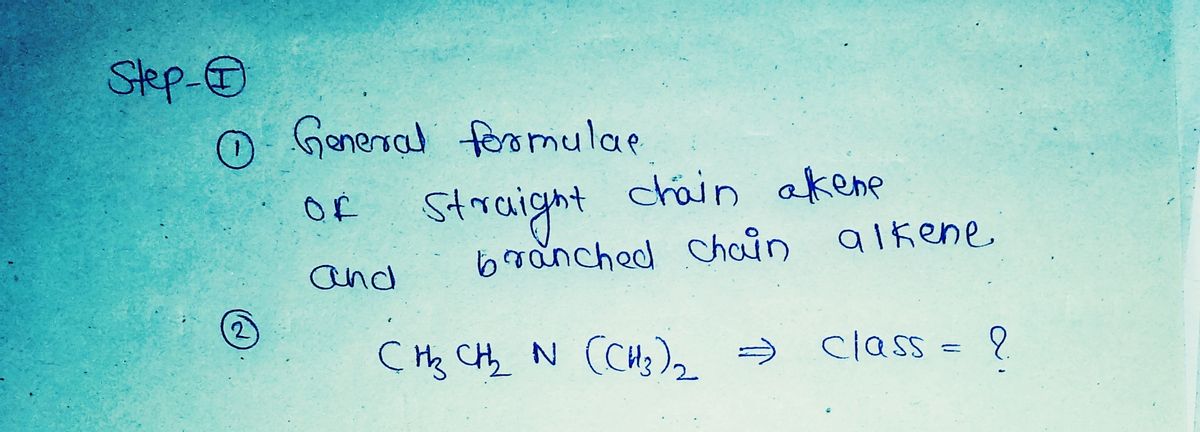 Step-Ⓘ
① General formulae
of straight chain alkene
and branched chain alkene
② CH₃ CH₂ N (CH₃)₂ ⇒ class = ?